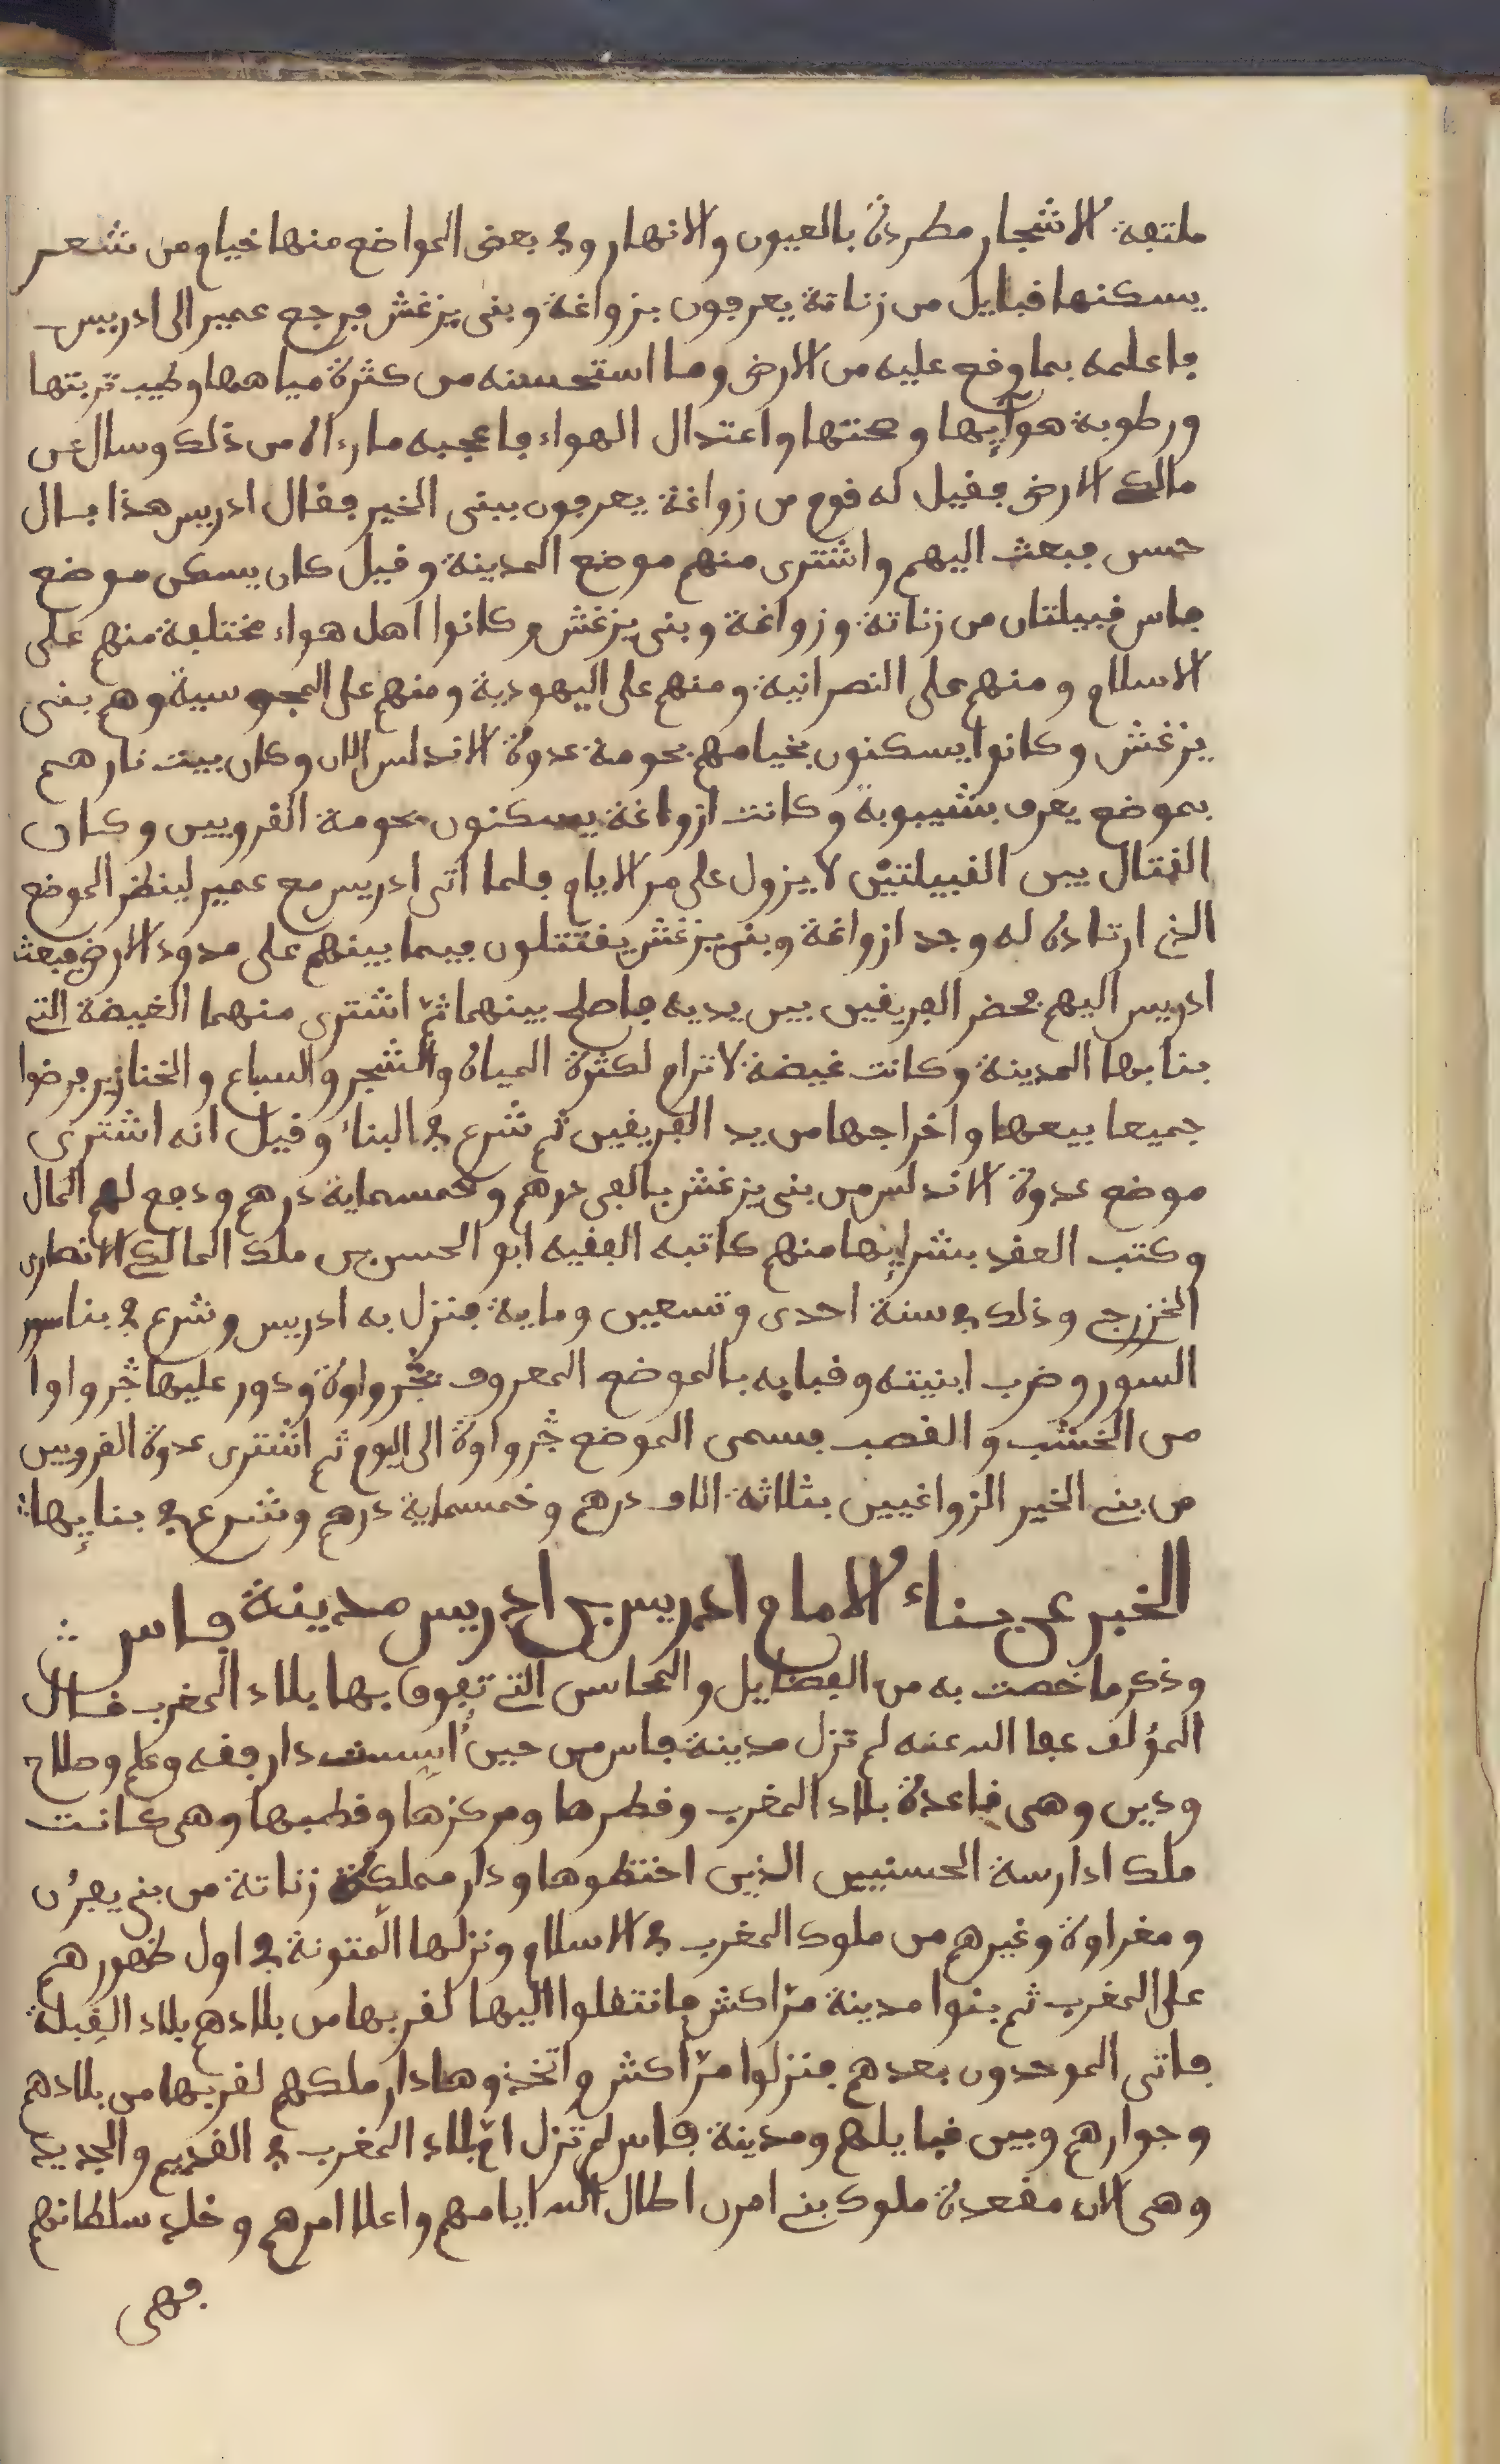 ملتفة الاشجار مطردة بالعيون والانهار وفي بعض المواضع منها خيام من شعر
يسكنها قبايل من زناتة يعرفون بزواغة وبنى يزغش فرجع عمير الى ادريس
فاعلمه بما وقع عليه من الارض وما استحسنه من كثرة مياهها وطيب تربتها
ورطوبة هوآيها وصحتها واعتدال الهواء فاعجبه ما رءاه من ذلك وسال عن
مالك الارض فقيل له قوم من زواغة يعرفون ببنى الخير فقال ادريس هذا فال
حسن فبعث اليهم واشترى منهم موضع المدينة وقيل كان يسكن موضع
فاس قبيلتان من زناتة وزواغة وبنى يزغش وكانوا اهل هواء مختلفة منهم على
الاسلام ومنهم على النصرانية ومنهم على اليهودية ومنهم على المجوسية وهم بنى
يزغش وكانوا يسكنون بخيامهم بحومة عدوة الاندلس الان وكان بيت نارهم
بموضع يعرف بشيبوبة وكانت ازواغة يسكنون بحومة القرويين وكان
القتال بين القبيلتيْن لا يزول على مر الايام فلما اتى ادريس مع عمير لينظر الموضع
الذي ارتاده له وجد ازواغة وبنى يزغش يقتتلون فيما بينهم على حدود الارض فبعث
ادريس اليهم فحضر الفريقين بين يديه فاصلح بينهما ثمّ اشترى منهما الغيضة التي
بنا بها المدينة وكانت غيضة لا ترام لكثرة المياه والشجر والسباع والخنازير فرضوا
جميعا ببيعها واخراجها من يد الفريقين ثم شرع في البناء وقيل انه اشترى
موضع عدوة الاندلس من بنى يزغش بالفى درهم وخمسماية درهم ودفع لهم المال
وكتب العقد بشرايها منهم كاتبه الفقيه ابو الحسن بن ملك المالكي الانصارى
الخزرج وذلك في سنة احدى وتسعين وماية فنزل به ادريس وشرع في بنا سور
السور وضرب ابنيته وقبابه بالموضع المعروف بجرواوة ودور عليها جرواوا
من الخشب والقصب فسمى الموضع جرواوة الى اليوم ثم اشترى عدوة القرويين
من بني الخير الزواغيين بثلاثة الاف درهم وخمسماية درهم وشرع في بنايها
الخبر عن بناء الامام ادريس بن ادريس مدينة فاس
وذكر ما خصت به من الفضايل والمحاسن التي تفوق بها بلاد المغرب قال
المؤلف عفا الله عنه لم تزل مدينة فاس من حين أسست دار فقه وعلم وصلاح
ودين وهى قاعدة بلاد المغرب وقطرها ومركزها وقطبها وهى كانت
ملك ادارسة الحسنيين الذين اختطوها ودار مملكة زناتة من بني يفرُن
ومغراوة وغيرهم من ملوك المغرب في الاسلام ونزلها المتونة في اول ظهورهم
على المغرب ثم بنوا مدينة مرّاكش فانتقلوا اليها لقربها من بلادهم بلاد القِبلة
فاتى الموحدون بعدهم فنزلوا مرّاكش واتخذوها دار ملكهم لقربها من بلادهم
وجوارهم وبين قبايلهم ومدينة فاس لم تزل امّ بلاد المغرب في القديم والجديد
وهى الان مقعدة ملوك بني امرن اطال الله ايامهم واعلا امرهم وخلد سلطانهم
فهى